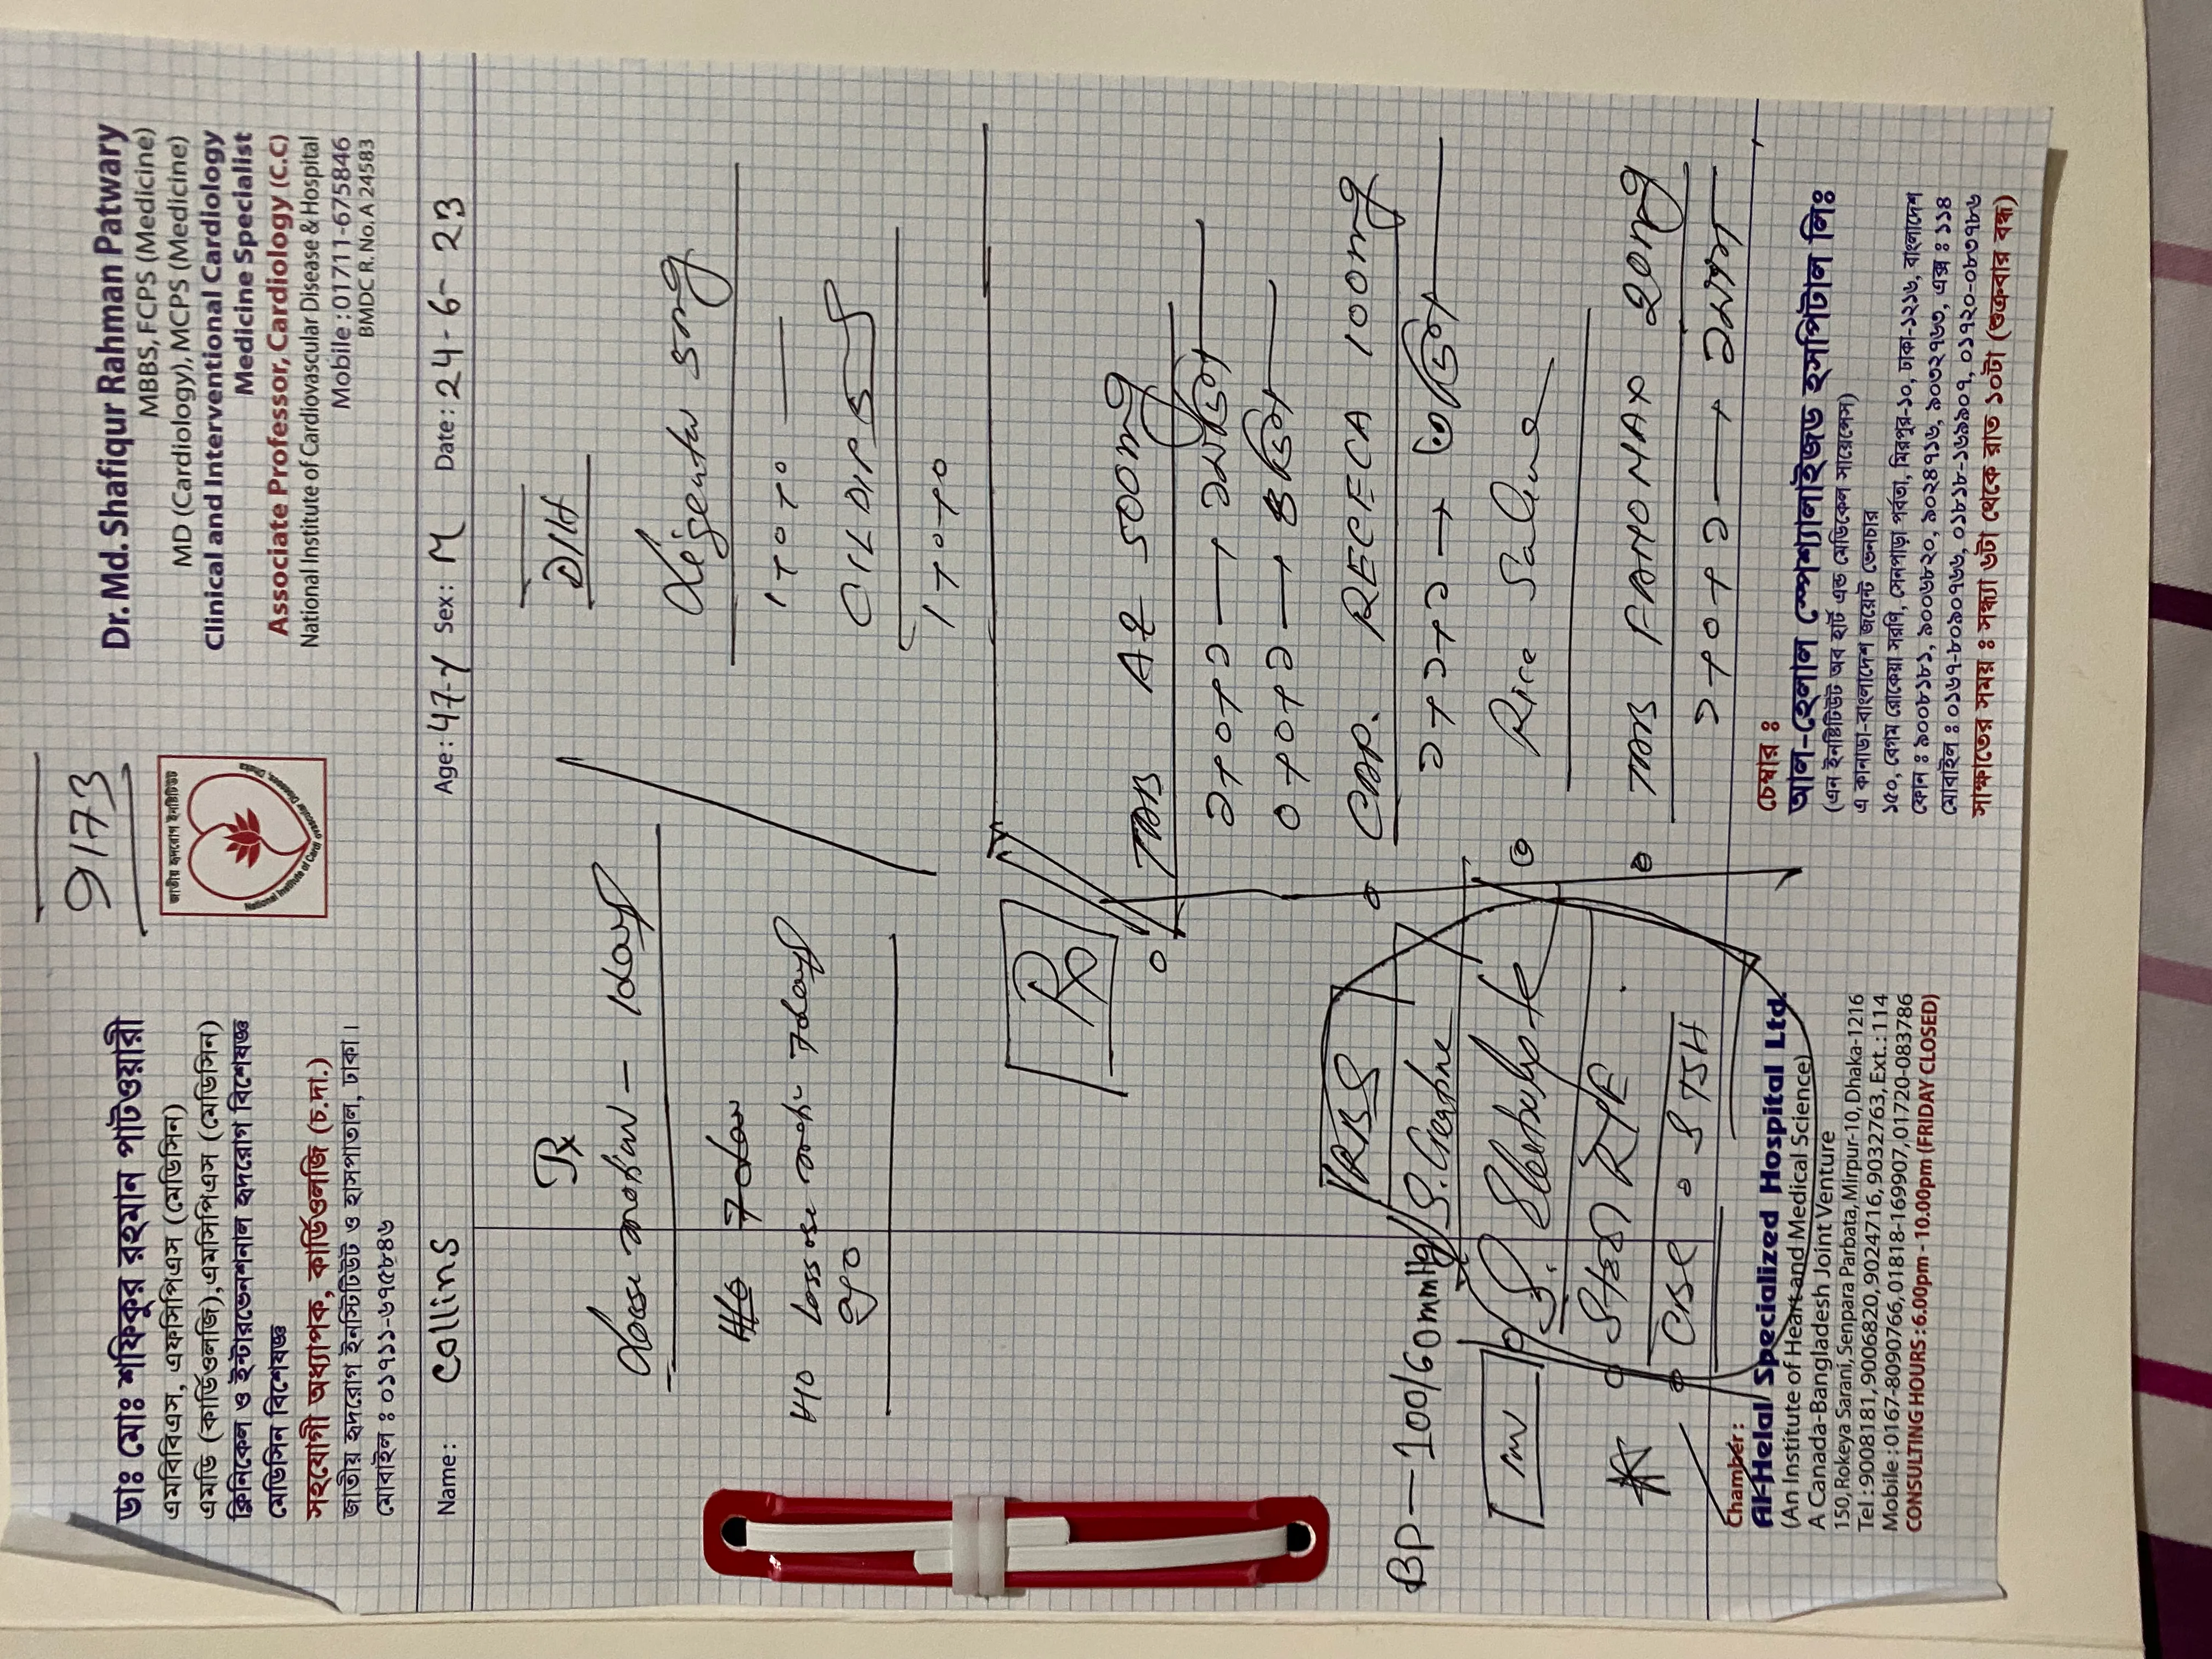 9173
ডাঃ মোঃ শফিকুর রহমান পাটওয়ারী
এমবিবিএস, এফসিপিএস (মেডিসিন)
এমডি (কার্ডিওলজি), এমসিপিএস (মেডিসিন)
ক্লিনিকেল ও ইন্টারভেনশনাল হৃদরোগ বিশেষজ্ঞ
মেডিসিন বিশেষজ্ঞ
সহযোগী অধ্যাপক, কার্ডিওলজি (চ.দা.)
জাতীয় হৃদরোগ ইনস্টিটিউট ও হাসপাতাল, ঢাকা।
মোবাইল : ০১৭১১-৬৭৫৮৪৬
জাতীয় হৃদরোগ ইনস্টিটিউট
National Institute of Cardiovascular Diseases, Dhaka
Dr. Md. Shafiqur Rahman Patwary
MBBS, FCPS (Medicine)
MD (Cardiology), MCPS (Medicine)
Clinical and Interventional Cardiology
Medicine Specialist
Associate Professor, Cardiology (C.C)
National Institute of Cardiovascular Disease & Hospital
Mobile : 01711-675846
BMDC R. No. A 24583
Name: Collins Age: 47-Y Sex: M Date: 24-6-23
loose motion - 1day
H/O
H/O loose motion 7days
ago
D/H
5mg
1+0+0
OILDIP 5
1+0+0
Rx
TAB AZ 500mg
১+০+১ → ১মদিন
০+০+১ → ৪দিন
CAP. RECECA 100mg
১+১+১ → ৩দিন
Rice Saline
TAB FAMOMAX 20mg
১+০+১ → ১মাস
BP-100/60mmHg
RBS
S. Creatinine
Inv
S. Electrolyte
Stool R/E
CBC S TSH
Chamber :
Al-Helal Specialized Hospital Ltd.
(An Institute of Heart and Medical Science)
A Canada-Bangladesh Joint Venture
150, Rokeya Sarani, Senpara Parbata, Mirpur-10, Dhaka-1216
Tel : 9008181, 9006820, 9024716, 9032763, Ext. : 114
Mobile : 0167-8090766, 01818-169907, 01720-083786
CONSULTING HOURS : 6.00pm - 10.00pm (FRIDAY CLOSED)
চেম্বার :
আল-হেলাল স্পেশ্যালাইজড হসপিটাল লিঃ
(এন ইনষ্টিটিউট অব হার্ট এন্ড মেডিকেল সায়েন্সেস)
এ কানাডা-বাংলাদেশ জয়েন্ট ভেনচার
১৫০, বেগম রোকেয়া সরণি, সেনপাড়া পর্বতা, মিরপুর-১০, ঢাকা-১২১৬, বাংলাদেশ
ফোন : ৯০০৮১৮১, ৯০০৬৮২০, ৯০২৪৭১৬, ৯০৩২৭৬৩, এক্স : ১১৪
মোবাইল : ০১৬৭-৮০৯০৭৬৬, ০১৮১৮-১৬৯৯০৭, ০১৭২০-০৮৩৭৮৬
সাক্ষাতের সময় : সন্ধ্যা ৬টা থেকে রাত ১০টা (শুক্রবার বন্ধ)